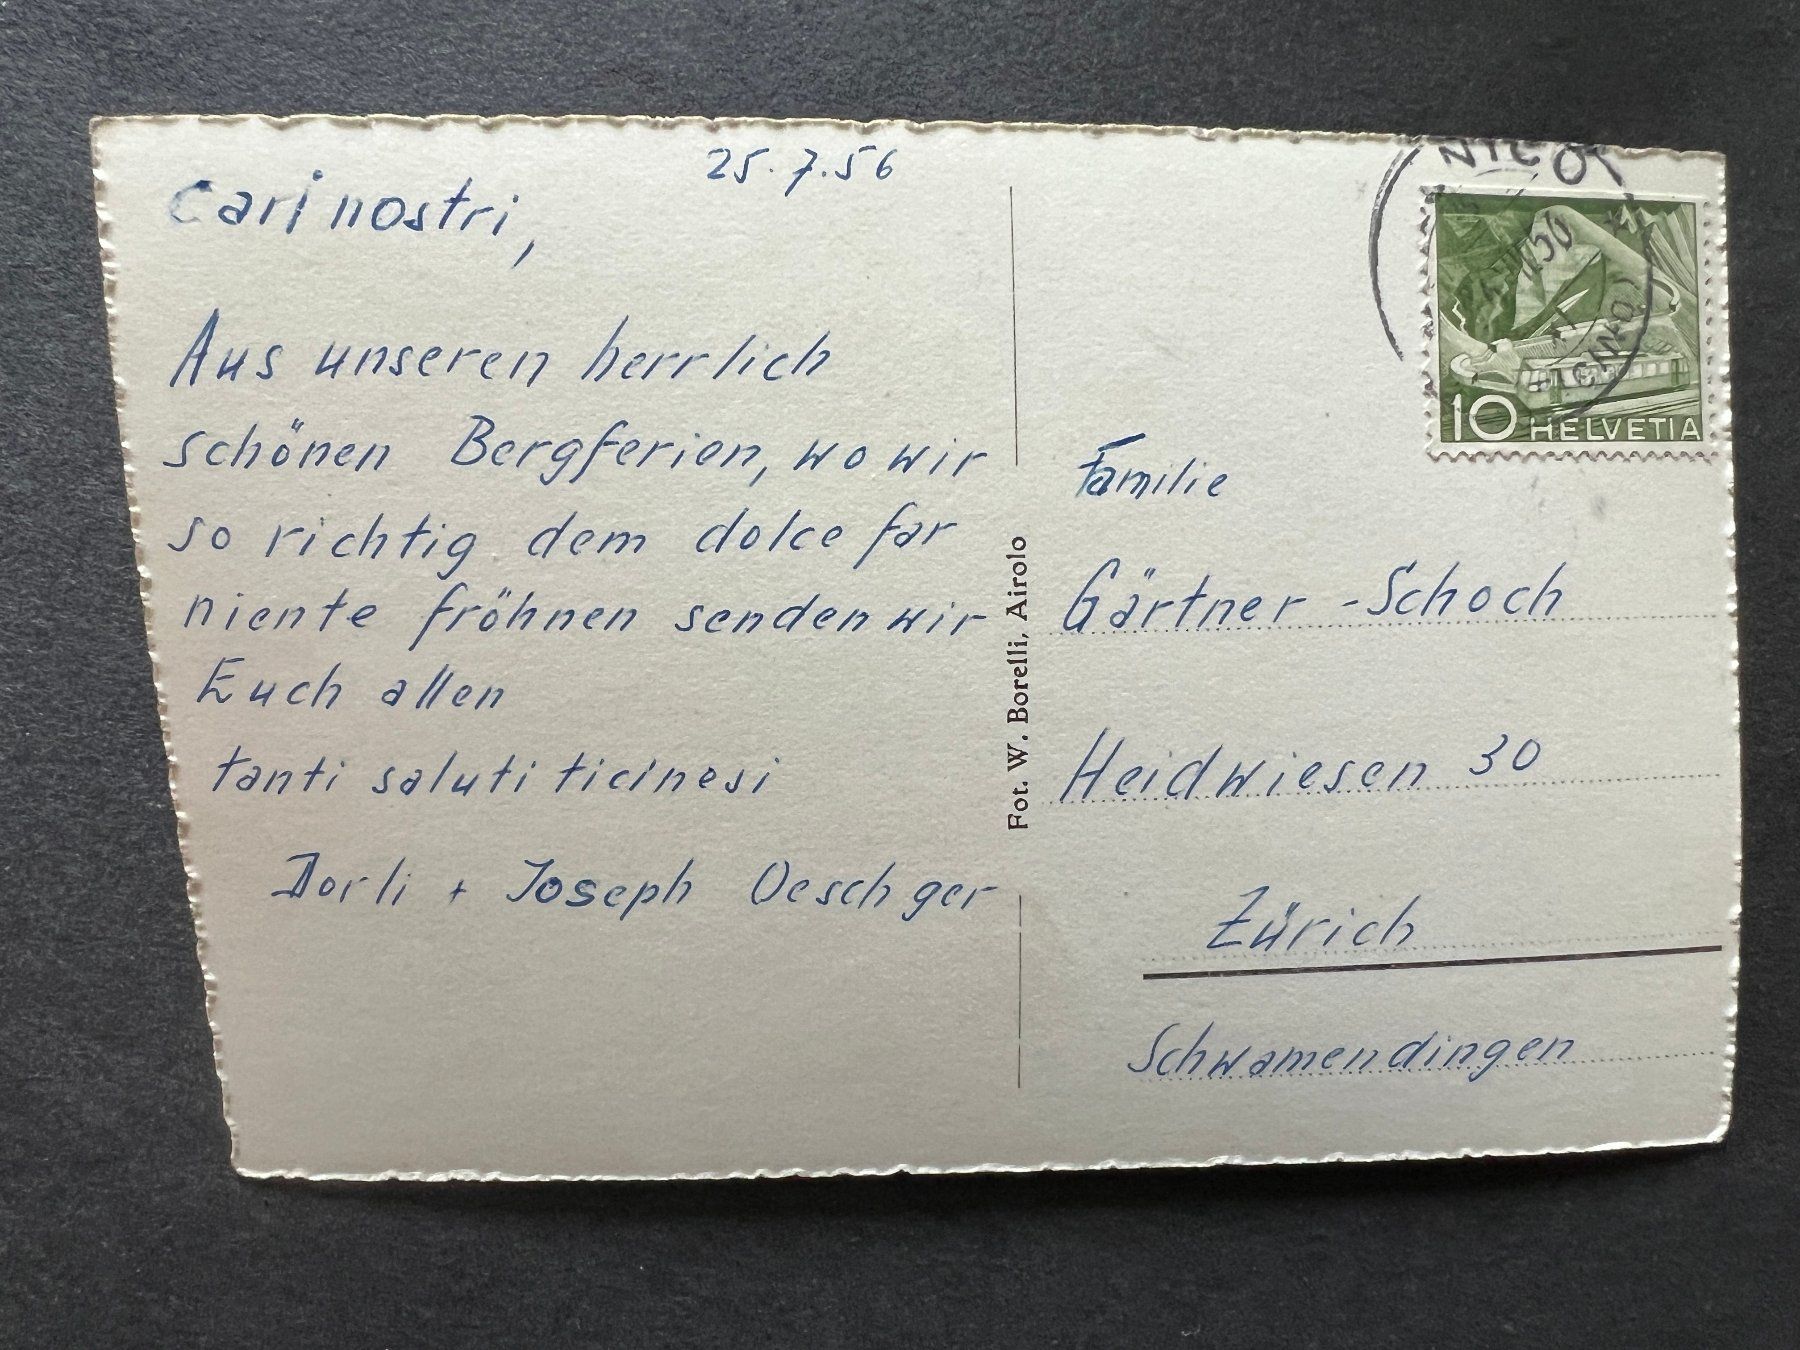 25.7.56
Cari nostri,
Aus unseren herrlich
schönen Bergferien, wo wir
so richtig dem dolce far
niente fröhnen senden wir
Euch allen
tanti saluti ticinesi
Dorli + Joseph Oeschger
Fot. W. Borelli, Airolo
10 HELVETIA
Familie
Gärtner-Schoch
Heidwiesen 30
Zürich
Schwamendingen